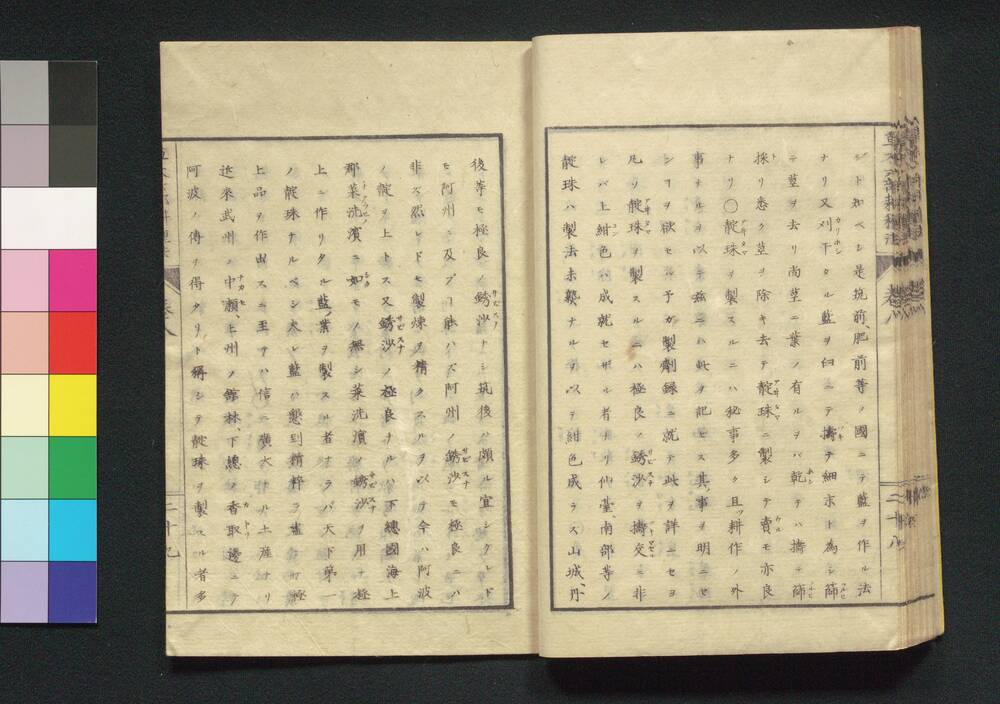 ジト知ベシ是筑前、肥前等ノ國ニテ藍ヲ作ル法
ナリ又刈干タル藍ヲ臼ニテ擣テ細末ト為シ篩
ニ莖ヲ去リ尚莖ニ葉ノ有ルヲバ乾テハ擣テ篩
採リ悉ク莖ヲ除キ去テ靛珠ニ製シテ賣モ亦良
ナリ〇靛珠ヲ製スルニハ秘事多ク且ツ耕作ノ外
事ナルヲ以テ茲ニハ此ヲ記セズ其事ヲ明ニセ
ンヿヲ欲セバ予ガ製劑録ニ就テ此ヲ詳ニセヨ
凡ソ靛珠ヲ製スルニハ極良ノ銹沙ヲ擣交ニ非
レバ上紺色ハ成就セザル者ナリ仙臺、南部等ノ
靛珠ハ製法未熟ナルヲ以テ紺色成ラズ山城、丹
後等モ極良ノ銹沙ナシ筑後ハ頗ル宜シクレド
モ阿州ニ及ブヿ能ハズ阿州ノ銹沙モ極良ニハ
非ズ然レドモ製煉ヲ精クスルヲ以テ今ハ阿波
ノ靛ヲ上トス又銹沙ノ極良ナルハ下總國海上
郡菜洗濱ニ如モノ無シ菜洗濱ノ銹沙ヲ用テ極
上ニ作リタル藍葉ヲ製スル者ナラバ天下第一
ノ靛珠ナルベシ夫レ藍ハ懇到精粹ヲ盡シテ極
上品ヲ作出スニ至テハ信ニ廣大ナル土産ナリ
近來武州ノ中瀬、上州ノ舘林、下總ノ香取邊ニテ
阿波ノ傳ヲ得タリト稱シテ靛珠ヲ製スル者多
卷八
二十八
卷八
二十九